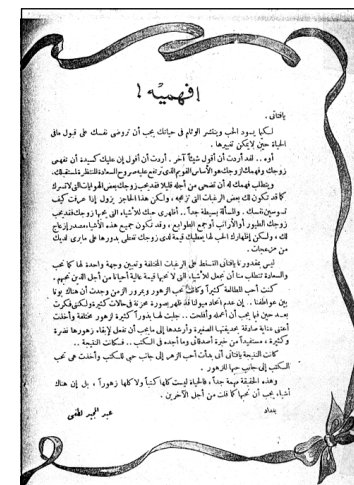 إفهميه !
يافتاتي .
لكيما يسود الحب وينتشر الوئام في حياتك يجب أن تروضي نفسك على قبول ما في
الحياة حين لا يمكن تغييرها .
أوه .. لقد أردت أن أقول شيئاً آخر . أردت أن أقول إن عليك كسيدة أن تفهمي
زوجك وفهمك لزوجك هو الأساس القويم الذي ترتفع عليه صروح السعادة المنتظرة لمستقبلك.
ويتطلب فهمك له أن تضحي من أجله قليلا فقد يحب زوجك بعض الهوايات التي لا تسرك
كما قد تكون لك بعض الرغبات التي تزعجه ، ولكن هذا الحاجز يزول إذا عرفت كيف
تسوسين نفسك . والمسألة بسيطة جداً .. أظهري حبك للأشياء التي يحبها زوجك فقد يحب
زوجك الطيور أو الأرانب أو جمع الطوابع . وقد تكون جميع هذه الأشياء مصدر إزعاج
لك ، ولكن إظهارك الحب لها يعطيك قيمة لدى زوجك تغطي بدورها على ما يرى لديك
من مزعجات .
ليس بمقدورنا يافتاتي التسلط على الرغبات المختلفة وتعيين وجهة واحدة لها كما نحب
والسعادة تتطلب منا أن نجعل للأشياء التي لا نحبها قيمة عالية أحيانا من أجل الذين نحبهم .
كنت أحب المطالعة كثيراً وكانت تحب الزهور وبمرور الزمن وجدت أن هناك بونا
بين عواطفنا . إن عدم اتحاد ميولنا قد ظهر بصورة محزنة في حالات كثيرة ولكني فكرت
بعد حين لما يجب أن أعمله وأفلحت .. جلبت لها بذوراً كثيرة لزهور مختلفة وأخذت
أعتني عناية صادقة بحديقتها الصغيرة وأرشدها إلى ما يجب أن تفعل لإبقاء زهورها نضرة
وكثيرة ، مستفيداً من خبرة أصدقائي وما أجده في الكتب .. فكانت النتيجة ..
كانت النتيجة يافتاتي أني بدأت أحب الزهر إلى جانب حبي للكتب وأخذت هي تحب
الكتب إلى جانب حبها للزهور .
وهذه الحقيقة مهمة جداً ، فالحياة ليست كلها كتباً ولا كلها زهوراً ، بل إن هناك
أشياء يجب أن نحبها كما قلت من أجل الآخرين .
بغداد
عبد المجيد لطفي